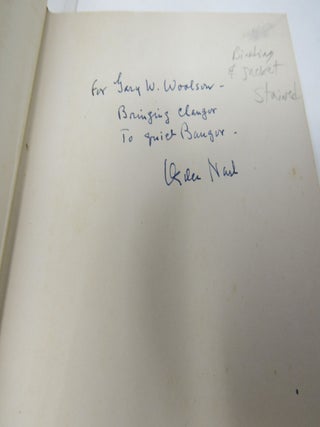 For Gary W. Woolson -
Bringing clangor
To quiet Bangor -
Ogden Nash
Binding
& jacket
stained